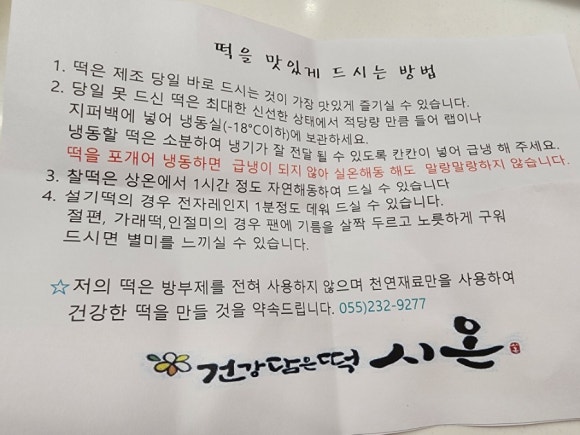 떡을 맛있게 드시는 방법
1. 떡은 제조 당일 바로 드시는것이 가장 맛있게 즐기실 수 있습니다.
2. 당일 못 드신 떡은 최대한 신선한 상태에서 적당량 만큼 들어 랩이나
지퍼백에 넣어 냉동실(-18°C이하)에 보관하세요.
냉동할 떡은 소분하여 냉기가 잘 전달 될 수 있도록 칸칸이 넣어 급냉 해 주세요.
떡을 포개어 냉동하면 급냉이 되지 않아 실온해동 해도 말랑말랑하지 않습니다.
3. 찰떡은 상온에서 1시간 정도 자연해동하여 드실 수 있습니다
4. 설기떡의 경우 전자레인지 1분정도 데워 드실 수 있습니다.
절편, 가래떡,인절미의 경우 팬에 기름을 살짝 두르고 노릇하게 구워
드시면 별미를 느끼실 수 있습니다.
☆저의 떡은 방부제를 전혀 사용하지 않으며 천연재료만을 사용하여
건강한 떡을 만들 것을 약속드립니다. 055)232-9277
건강담은떡 시온